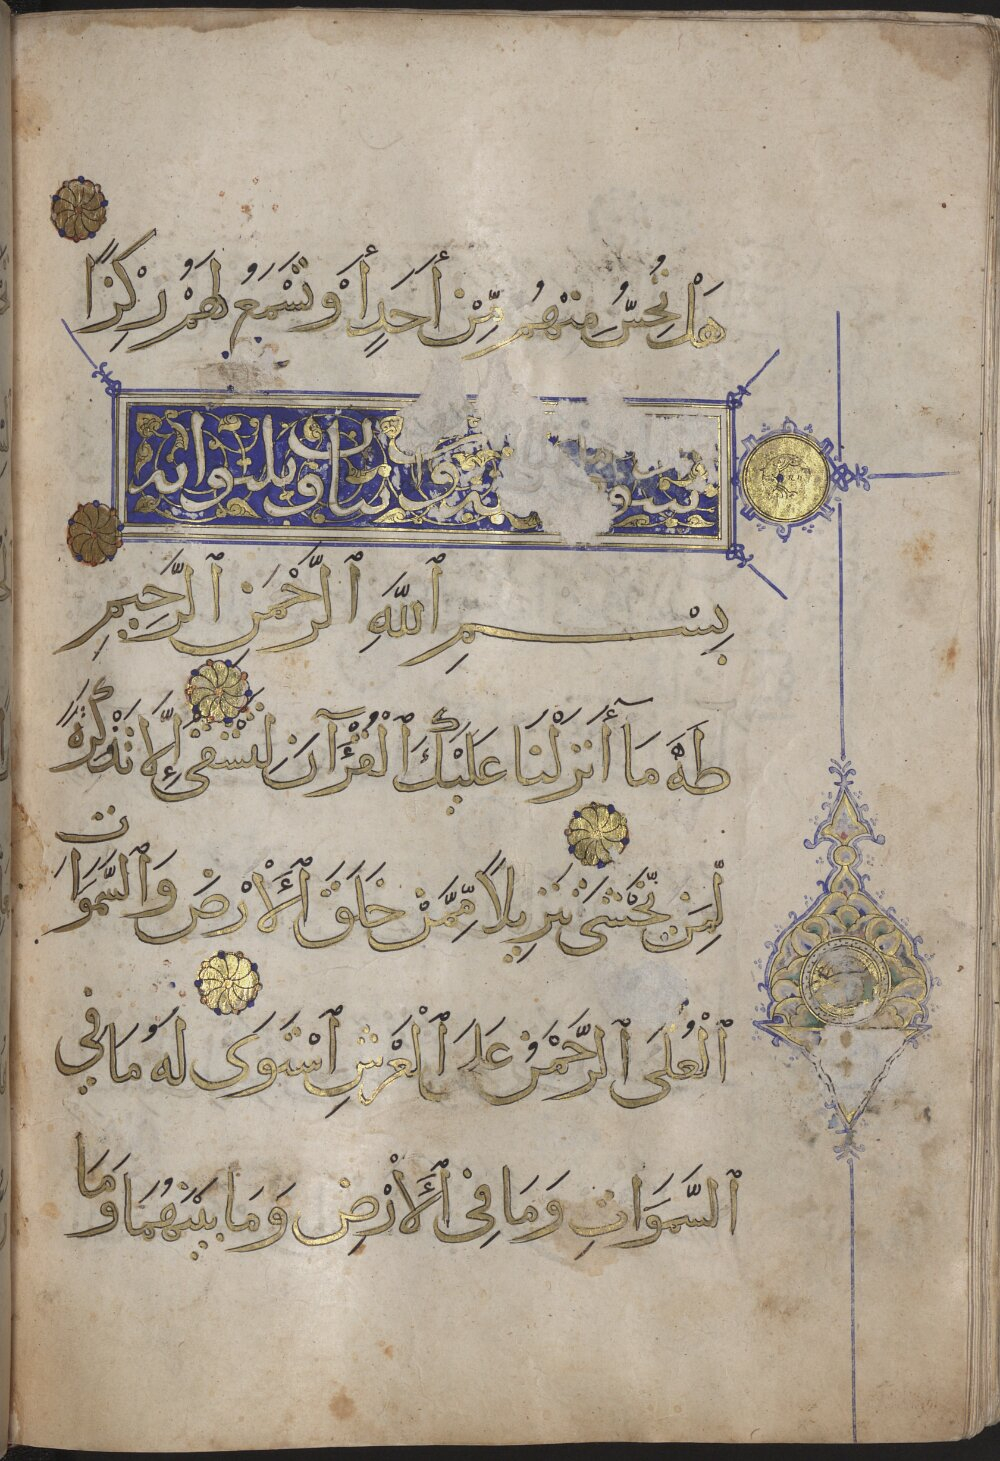 هَلْ تُحِسُّ مِنْهُمْ مِّنْ أَحَدٍ أَوْ تَسْمَعُ لَهُمْ رِكْزًا
بِسْمِ ٱللَّهِ ٱلرَّحْمَٰنِ ٱلرَّحِيمِ
طَهَ مَآ أَنزَلْنَا عَلَيْكَ ٱلْقُرْآنَ لِتَشْقَى إِلَّا تَذْكِرَةً
لِّمَن يَّخْشَى تَنزِيلًا مِّمَّنْ خَلَقَ ٱلْأَرْضَ وَٱلسَّمَوَاتِ
ٱلْعُلَى ٱلرَّحْمَنُ عَلَى ٱلْعَرْشِ ٱسْتَوَى لَهُ مَا فِي
ٱلسَّمَوَاتِ وَمَا فِي ٱلْأَرْضِ وَمَا بَيْنَهُمَا وَمَا